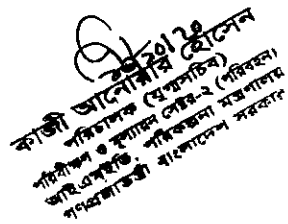 ২০/১০
কাজী আনোয়ার হোসেন
পরিচালক (যুগ্মসচিব)
পরিবীক্ষণ ও মূল্যায়ন সেক্টর-২ (পরিবহন)
আইএমইডি, পরিকল্পনা মন্ত্রণালয়
গণপ্রজাতন্ত্রী বাংলাদেশ সরকার